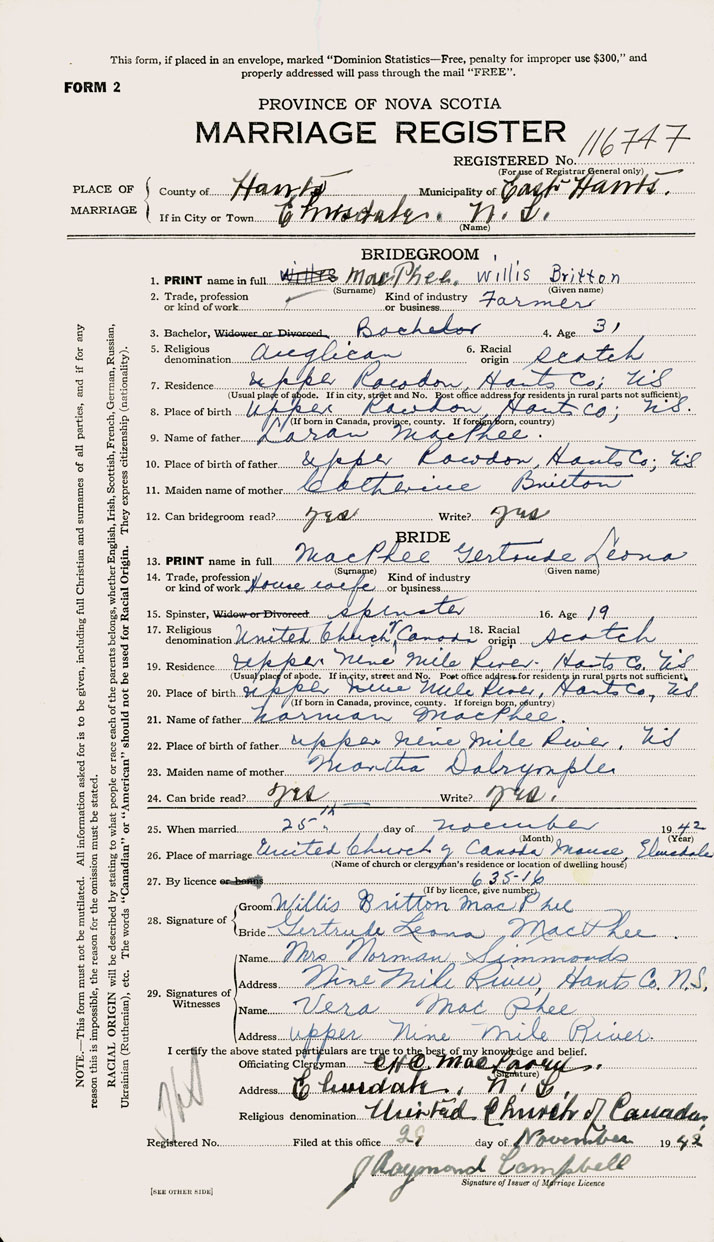 This form, if placed in an envelope, marked "Dominion Statistics—Free, penalty for improper use $300," and
properly addressed will pass through the mail "FREE".
FORM 2
PROVINCE OF NOVA SCOTIA
MARRIAGE REGISTER
116747
REGISTERED No.
(For use of Registrar General only)
PLACE OF MARRIAGE
County of Hants Municipality of East Hants.
If in City or Town Elmsdale. N. S.
(Name)
BRIDEGROOM
1. PRINT name in full Willis MacPhee. Willis Britton
(Surname) (Given name)
2. Trade, profession or kind of work Kind of industry or business Farmer
3. Bachelor, Widower or Divorced Bachelor 4. Age 31
5. Religious denomination Anglican 6. Racial origin Scotch
7. Residence Upper Rawdon, Hants Co; NS
(Usual place of abode. If in city, street and No. Post office address for residents in rural parts not sufficient)
8. Place of birth Upper Rawdon, Hants Co; NS.
(If born in Canada, province, county. If foreign born, country)
9. Name of father MacPhee.
10. Place of birth of father Upper Rawdon, Hants Co; NS
11. Maiden name of mother Catherine Britton
12. Can bridegroom read? yes Write? yes
BRIDE
13. PRINT name in full MacPhee Gertrude Leona
(Surname) (Given name)
14. Trade, profession or kind of work House wife Kind of industry or business
15. Spinster, Widow or Divorced spinster 16. Age 19
17. Religious denomination United Church of Canada 18. Racial origin Scotch
19. Residence Upper Nine Mile River - Hants Co. NS
(Usual place of abode. If in city, street and No. Post office address for residents in rural parts not sufficient)
20. Place of birth Upper Nine Mile River, Hants Co, NS
(If born in Canada, province, county. If foreign born, country)
21. Name of father Norman MacPhee.
22. Place of birth of father Upper Nine Mile River, NS
23. Maiden name of mother Martha Dalrymple
24. Can bride read? yes Write? yes.
25. When married 25th day of November 1942
(Month) (Year)
26. Place of marriage United Church of Canada Manse, Elmsdale
(Name of church or clergyman's residence or location of dwelling house)
27. By licence or banns 635-16
(If by licence, give number)
28. Signature of
Groom Willis Britton MacPhee
Bride Gertrude Leona MacPhee.
29. Signatures of Witnesses
Name Mrs Norman Simmonds
Address Nine Mile River, Hants Co. N.S.
Name Vera MacPhee
Address Upper Nine Mile River.
I certify the above stated particulars are true to the best of my knowledge and belief.
Officiating Clergyman
(Signature)
Address Elmsdale, N. S.
Religious denomination United Church of Canada
Registered No. Filed at this office 29 day of November 1942
J Raymond Campbell
Signature of Issuer of Marriage Licence
[SEE OTHER SIDE]
NOTE.—This form must not be mutilated. All information asked for is to be given, including full Christian and surnames of all parties, and if for any
reason this is impossible, the reason for the omission must be stated.
RACIAL ORIGIN will be described by stating to what people or race each of the parents belongs, whether English, Irish, Scottish, French, German, Russian,
Ukrainian (Ruthenian), etc. The words "Canadian" or "American" should not be used for Racial Origin. They express citizenship (nationality).